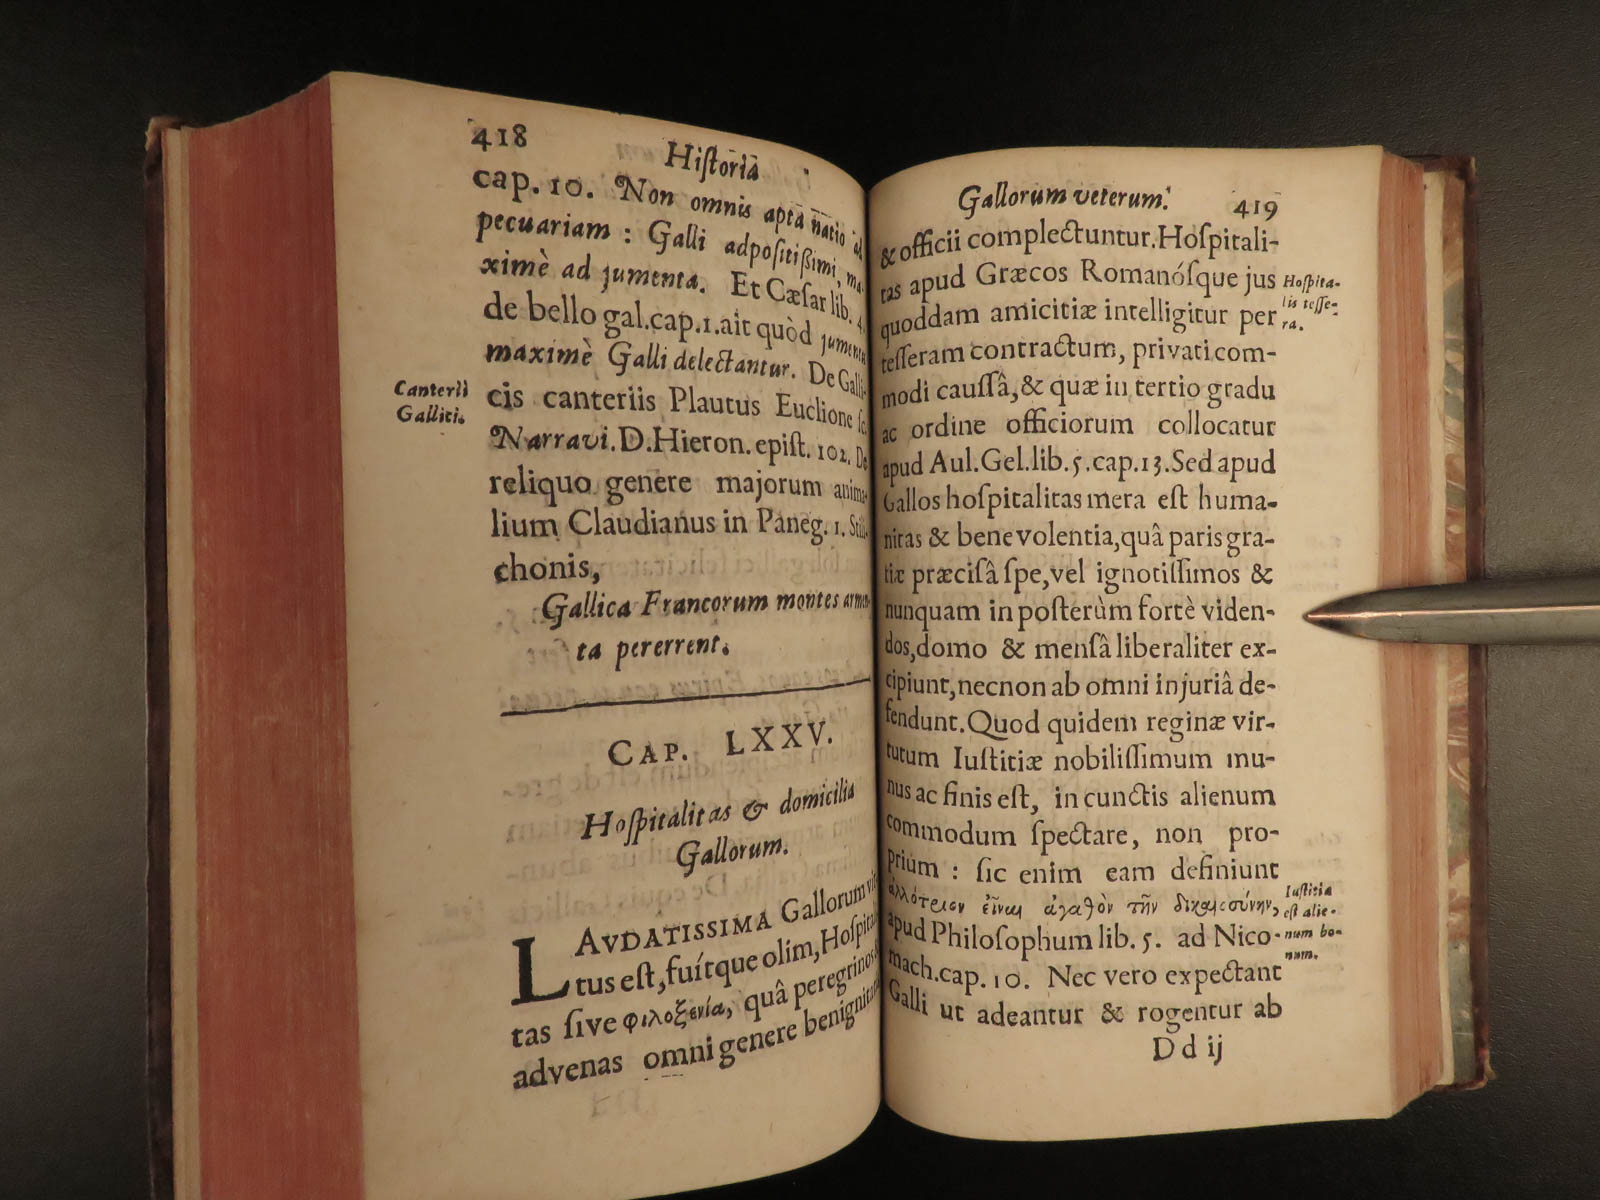 418
Hiſtoria
cap. 10. Non omnis apta natio ad
pecuariam : Galli adpoſitißimi, ma-
ximè ad jumenta. Et Cæſar lib. 4.
de bello gal.cap.1.ait quòd jumentis
maximè Galli delectantur. De Galli-
Canterii
Gallici.
cis canteriis Plautus Euclione ſc.
Narravi. D. Hieron. epiſt. 102. De
reliquo genere majorum anima-
lium Claudianus in Paneg. 1. Stili-
chonis,
Gallica Francorum montes armen-
ta pererrent.
CAP. LXXV.
Hoſpitalitas & domicilia
Gallorum.
LAVDATISSIMA Gallorum
tus eſt, fuítque olim, Hoſpitali-
tas ſive φιλοξενία, quâ peregrinos &
advenas omni genere benignitatis
Gallorum veterum.
419
& officii complectuntur. Hoſpitali-
tas apud Græcos Romanóſque jus
Hoſpita-
lis teſſe-
ra.
quoddam amicitiæ intelligitur per
teſſeram contractum, privati com-
modi cauſſâ, & quæ in tertio gradu
ac ordine officiorum collocatur
apud Aul. Gel. lib. 5. cap. 13. Sed apud
Gallos hoſpitalitas mera eſt huma-
nitas & benevolentia, quâ paris gra-
tiæ præciſâ ſpe, vel ignotiſſimos &
nunquam in poſterùm fortè viden-
dos, domo & menſâ liberaliter ex-
cipiunt, necnon ab omni injuriâ de-
fendunt. Quod quidem reginæ vir-
tutum Iuſtitiæ nobiliſſimum mu-
nus ac finis eſt, in cunctis alienum
commodum ſpectare, non pro-
prium : ſic enim eam definiunt
ἀλλότριον εἶναι ἀγαθὸν τὴν δικαιοσύνην,
Iuſtitia
eſt alie-
num bo-
num.
apud Philoſophum lib. 5. ad Nico-
mach. cap. 10. Nec vero expectant
Galli ut adeantur & rogentur ab
D d ij